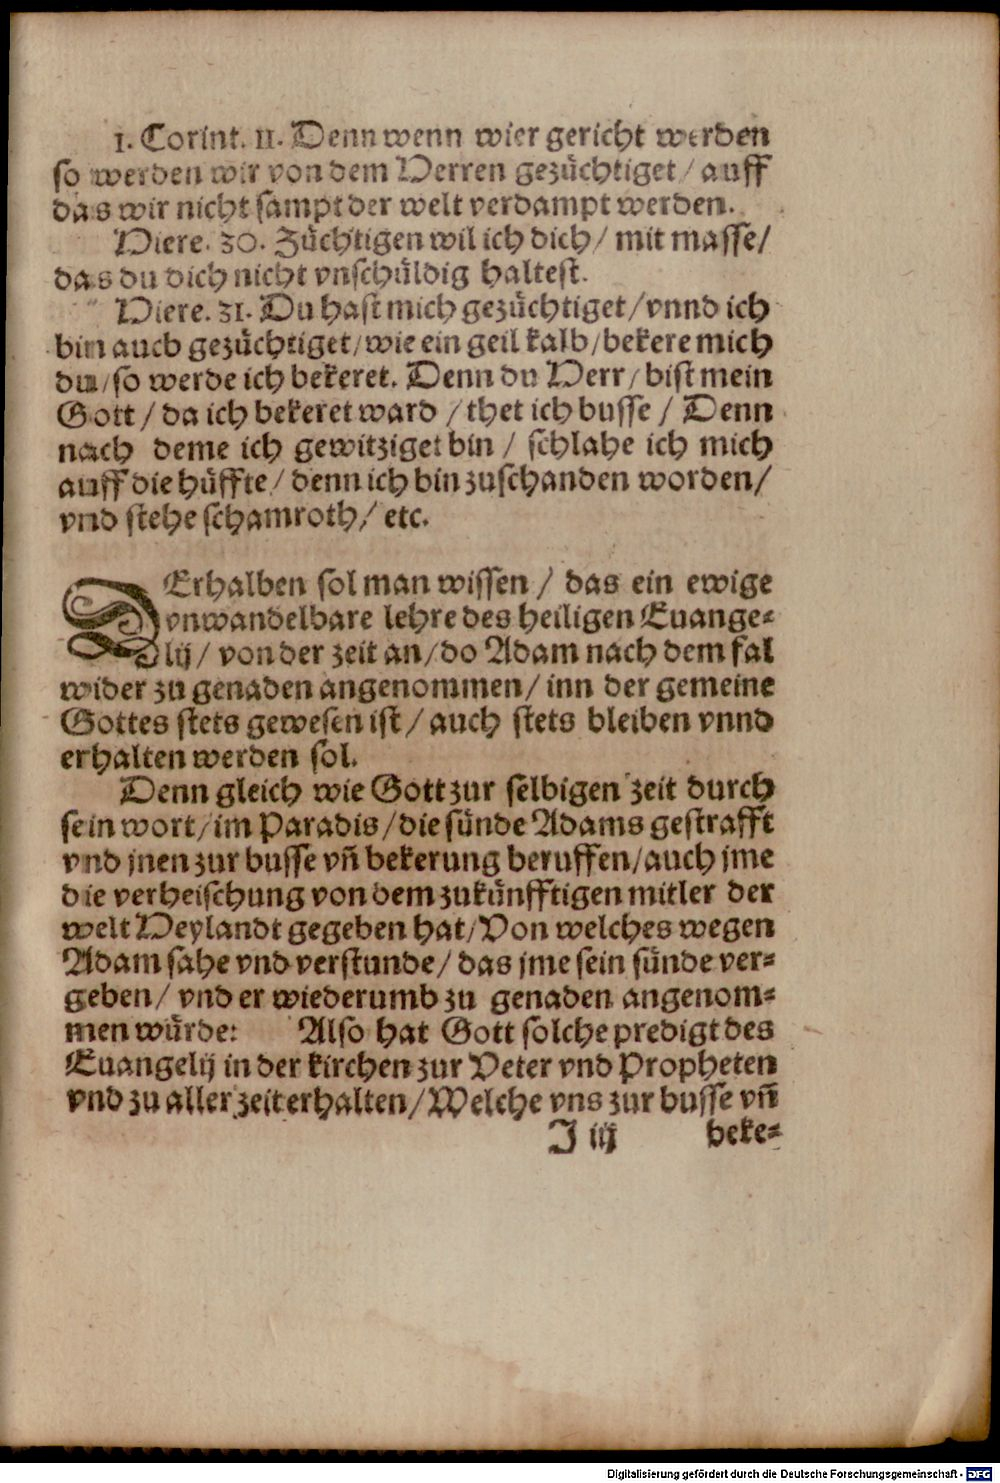 1. Corint. 11. Denn wenn wier gericht werden
so werden wir von dem Herren gezüchtiget / auff
das wir nicht sampt der welt verdampt werden.
Hiere. 30. Züchtigen wil ich dich / mit masse /
das du dich nicht vnschüldig haltest.
Hiere. 31. Du hast mich gezüchtiget / vnnd ich
bin auch gezüchtiget / wie ein geil kalb / bekere mich
du / so werde ich bekeret. Denn du Herr / bist mein
Gott / da ich bekeret ward / thet ich busse / Denn
nach deme ich gewitziget bin / schlahe ich mich
auff die hüffte / denn ich bin zuschanden worden /
vnd stehe schamroth / etc.
DErhalben sol man wissen / das ein ewige
vnwandelbare lehre des heiligen Euange⸗
lij / von der zeit an / do Adam nach dem fal
wider zu genaden angenommen / inn der gemeine
Gottes stets gewesen ist / auch stets bleiben vnnd
erhalten werden sol.
Denn gleich wie Gott zur selbigen zeit durch
sein wort / im Paradis / die sünde Adams gestrafft
vnd jnen zur busse vn̄ bekerung beruffen / auch jme
die verheischung von dem zukünfftigen mitler der
welt Heylandt gegeben hat / Von welches wegen
Adam sahe vnd verstunde / das jme sein sünde ver⸗
geben / vnd er wiederumb zu genaden angenom⸗
men würde: Also hat Gott solche predigt des
Euangelij in der kirchen zur Veter vnd Propheten
vnd zu aller zeit erhalten / Welche vns zur busse vn̄
J iij beke⸗
Digitalisierung gefördert durch die Deutsche Forschungsgemeinschaft - DFG